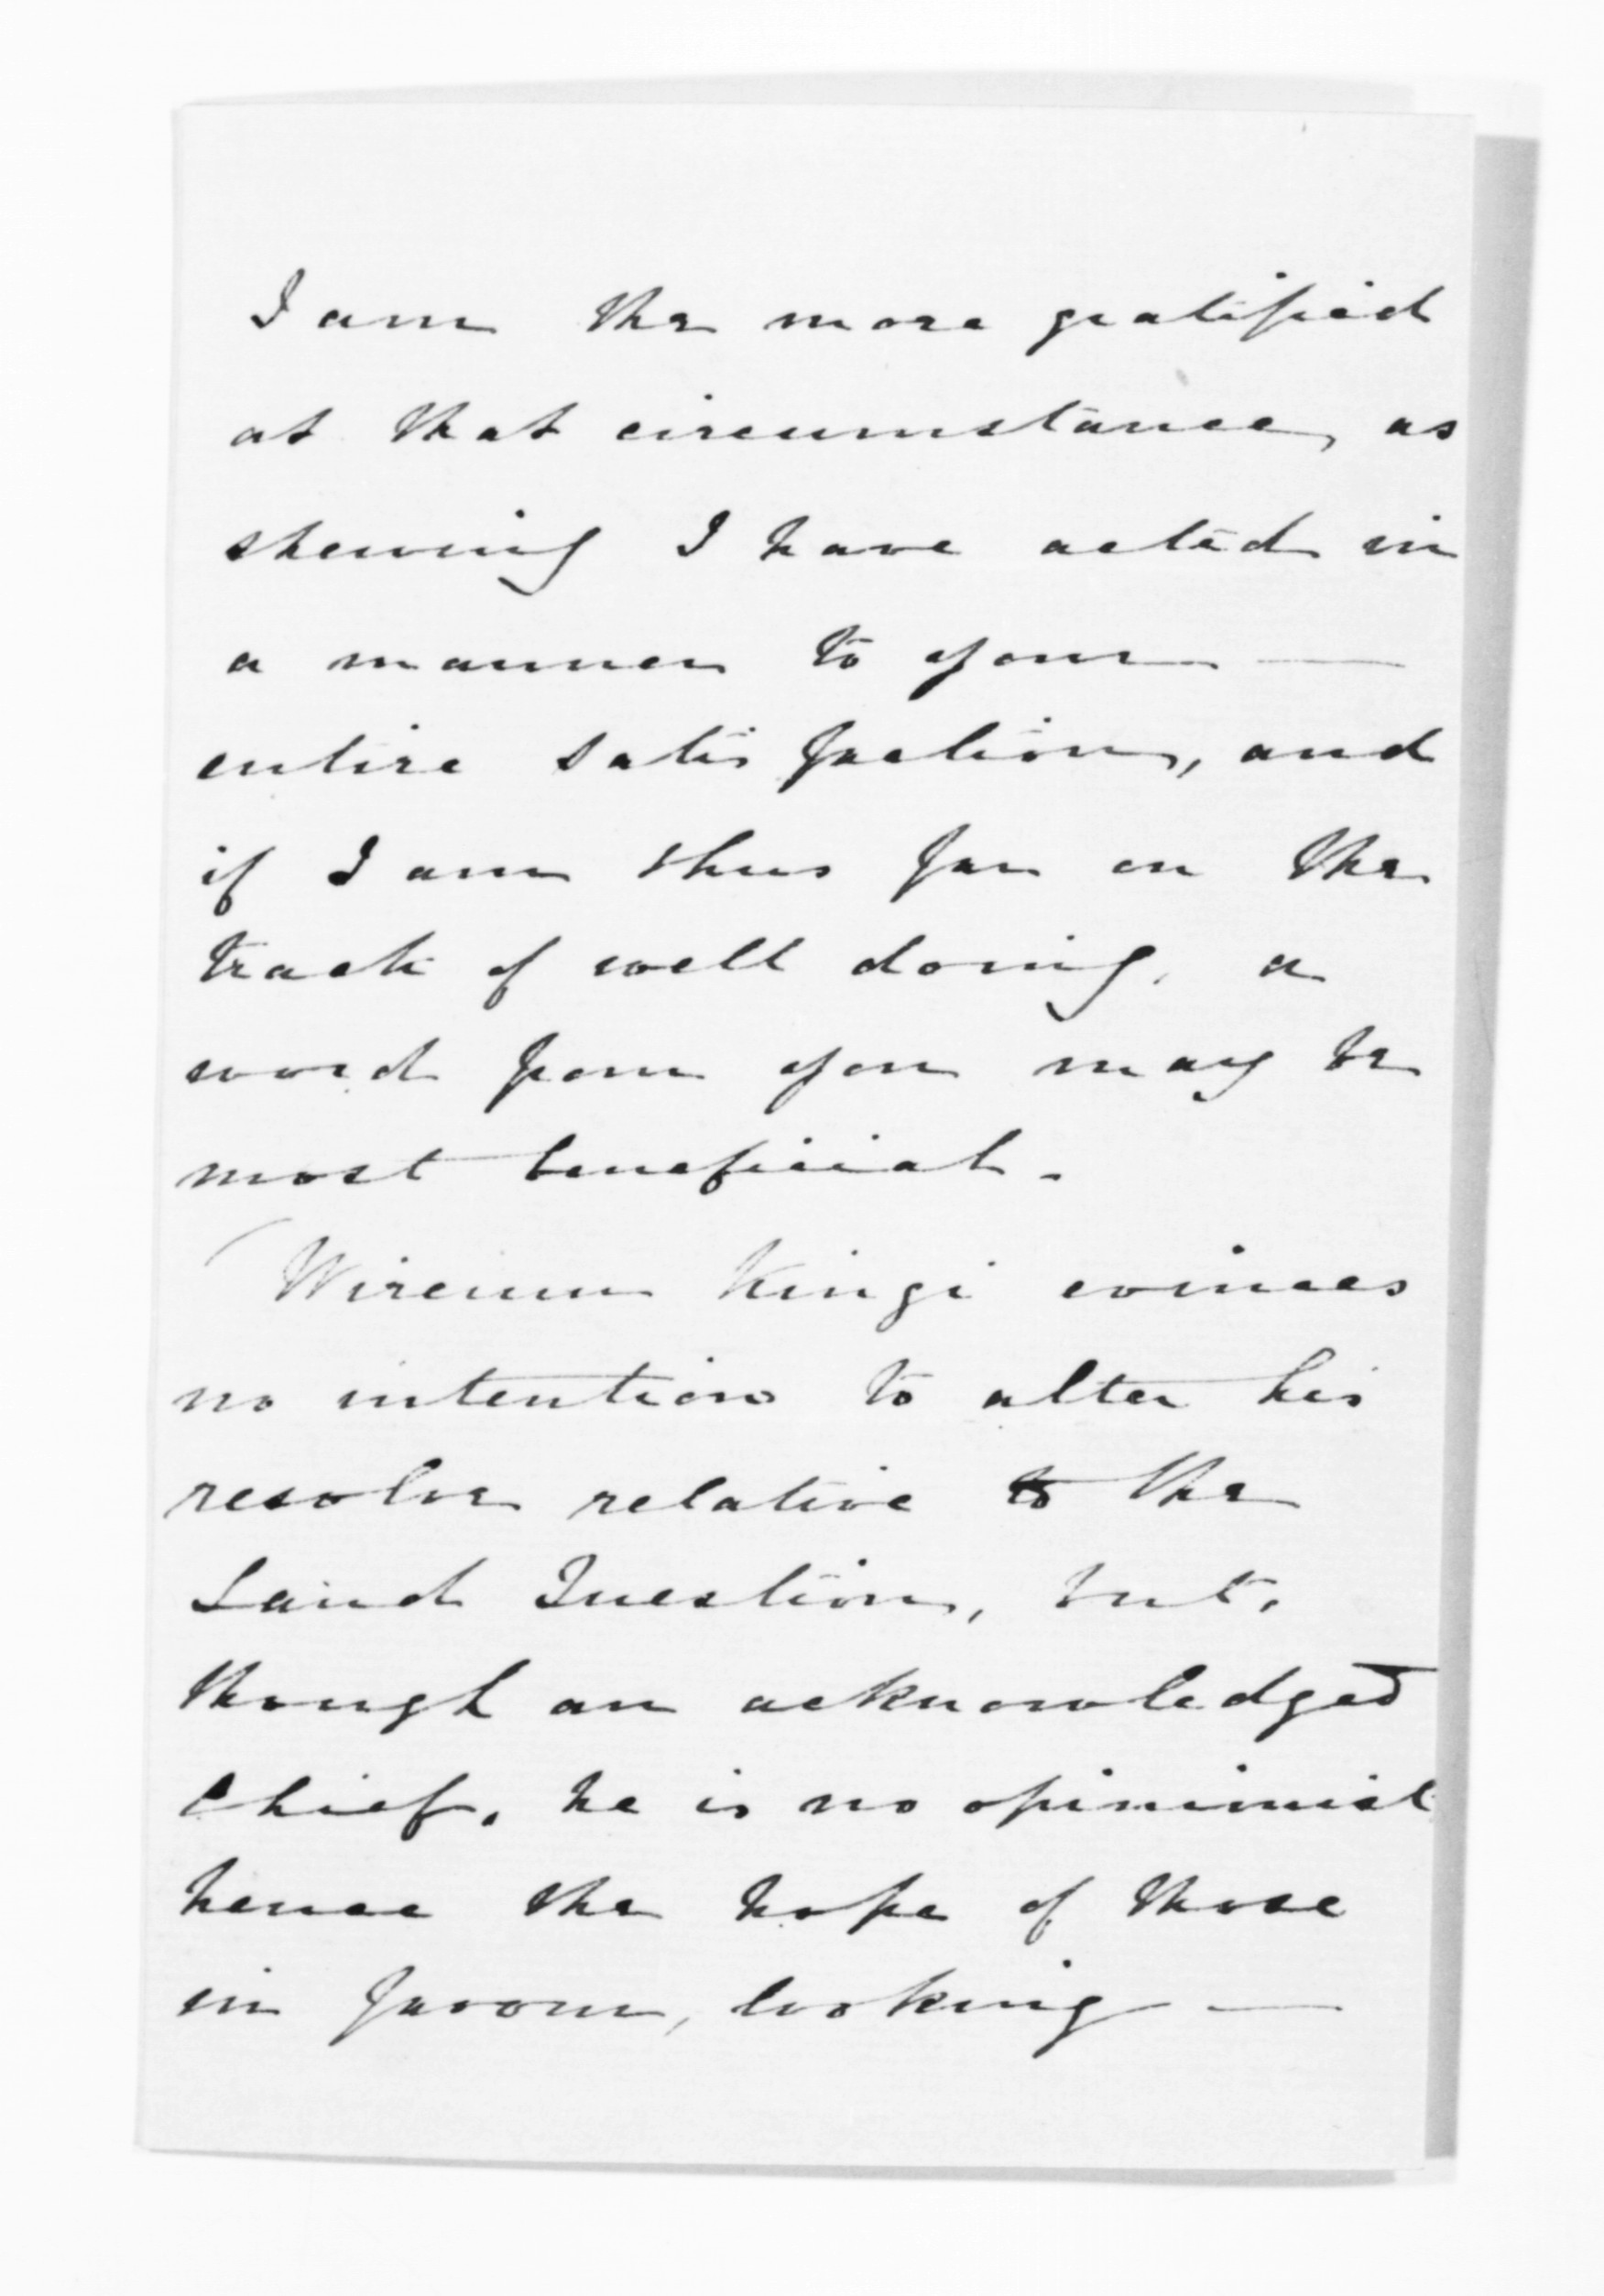 I am the more gratified
at that circumstance, as
shewing I have acted in
a manner to your —
entire satisfaction, and
if I am thus far on the
track of well doing, a
word from you may be
most beneficial.
Wiremu Kingi evinces
no intention to alter his
resolve relative to the
Land Question, but,
though an acknowledged
Chief, he is no opinionist
hence the hope of those
in favour, looking —